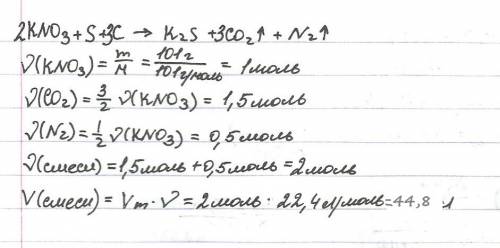 2KNO₃ + S + 3C → K₂S + 3CO₂↑ + N₂↑
ν(KNO₃) = m/M = 101г/101г/моль = 1моль
ν(CO₂) = 3/2 ν(KNO₃) = 1,5моль
ν(N₂) = 1/2 ν(KNO₃) = 0,5моль
ν(смеси) = 1,5моль + 0,5моль = 2моль
V(смеси) = Vm · ν = 2моль · 22,4л/моль = 44,8 л